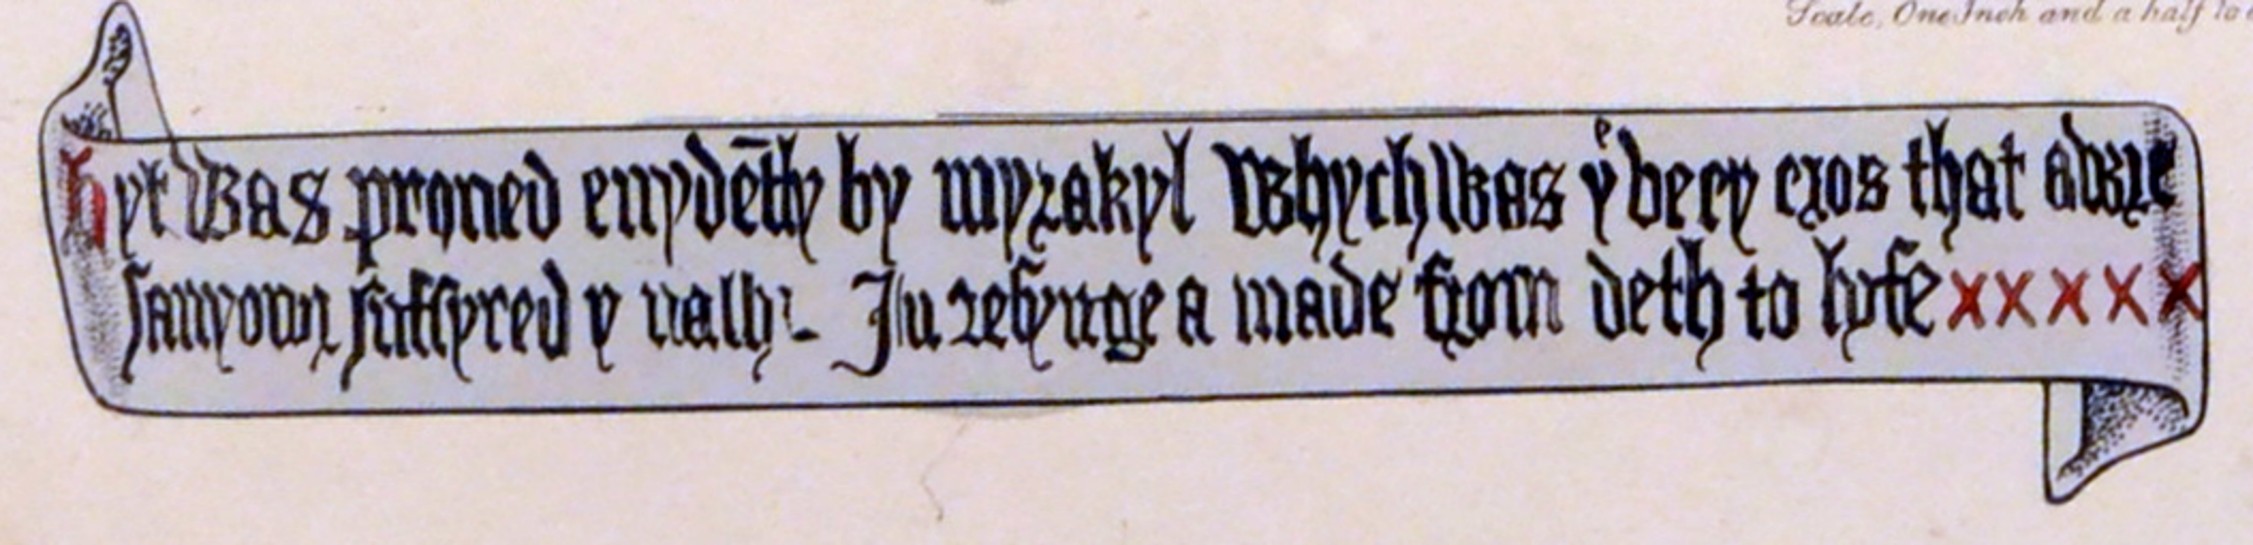 Scale, One Inch and a half to
hyt was proued euydētly by myrakyl whych was yͤ very cros that owre
sauyour suffyred y naly Ihu resynge a made from deth to lyfe xxxxx